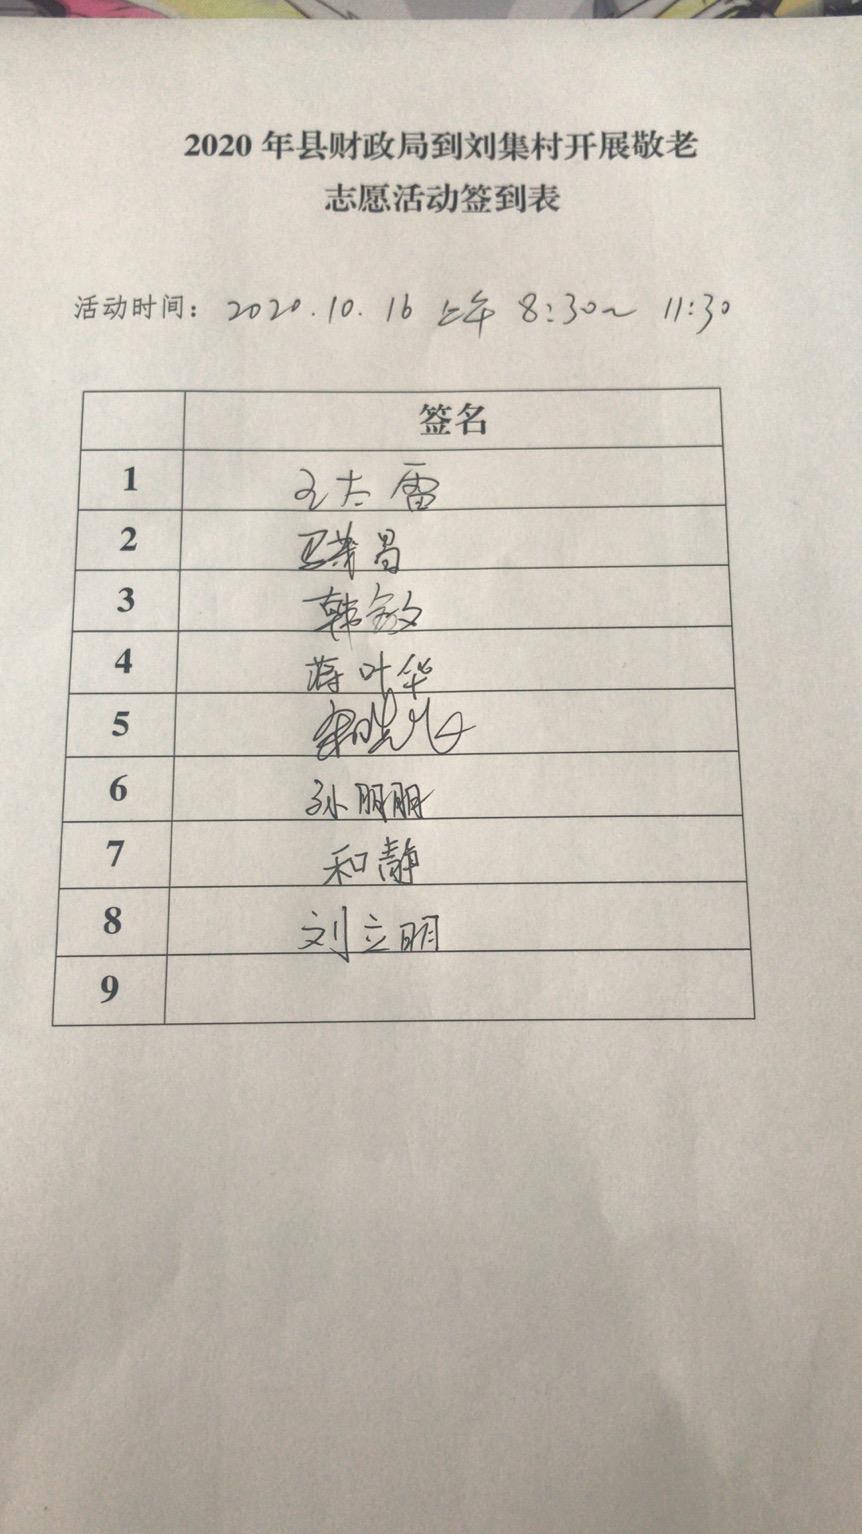 2020 年县财政局到刘集村开展敬老
志愿活动签到表
活动时间： 2020.10.16 上午 8:30~ 11:30
签名
1 王大雷
2
3 韩敏
4 蒋叶华
5
6 孙丽丽
7 和静
8 刘立明
9